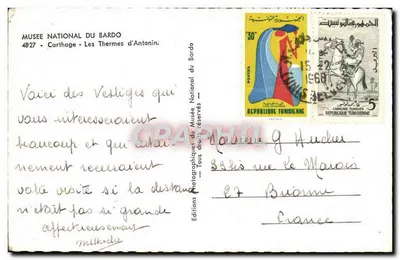 MUSEE NATIONAL DU BARDO
4927 - Carthage - Les Thermes d'Antonin.
Voici des Vestiges qui
vous intéresseraient
beaucoup et qui certai-
nement recevraient
votre visite si la distance
n'était pas si grande
affectueusement
Editions photographiques du Musée National du Bardo
- Tous droits réservés -
30
POSTES
REPUBLIQUE TUNISIENNE
الجمهورية التونسية
5
REPUBLIQUE TUNISIENNE
15-12
1968
TUNIS
G Hucher
33 bis rue Le Marois
27
France